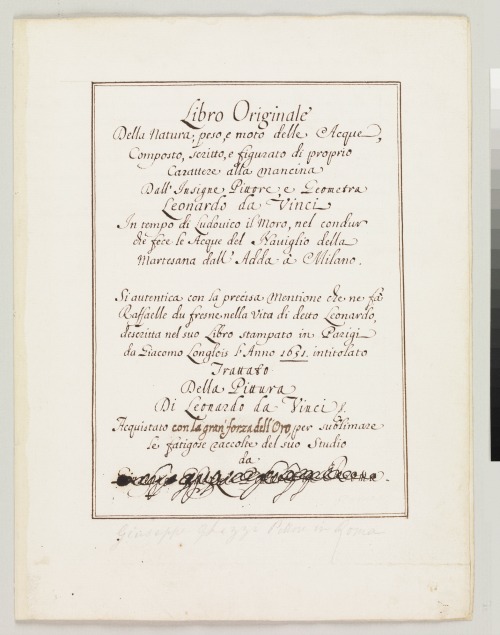 Libro Originale
Della Natura, peso, e moto delle Acque,
Composto, scritto, e figurato di proprio
Carattere alla mancina
Dall' Insigne Pittore, e Geometra
Leonardo da Vinci
In tempo di Ludovico il Moro, nel condur
che fece le Acque del Naviglio della
Martesana dall' Adda à Milano.
Si autentica con la precisa Mentione che ne fà
Raffaelle du fresne nella Vita di detto Leonardo,
descritta nel suo Libro stampato in Parigi
da Giacomo Longlois l'Anno 1651. intitolato
Trattato
Della Pittura
Di Leonardo da Vinci
Acquistato con la gran forza dell'Oro per sublimare
le fatigose raccolte del suo Studio
da
Giuseppe Ghezzi Pittore in Roma